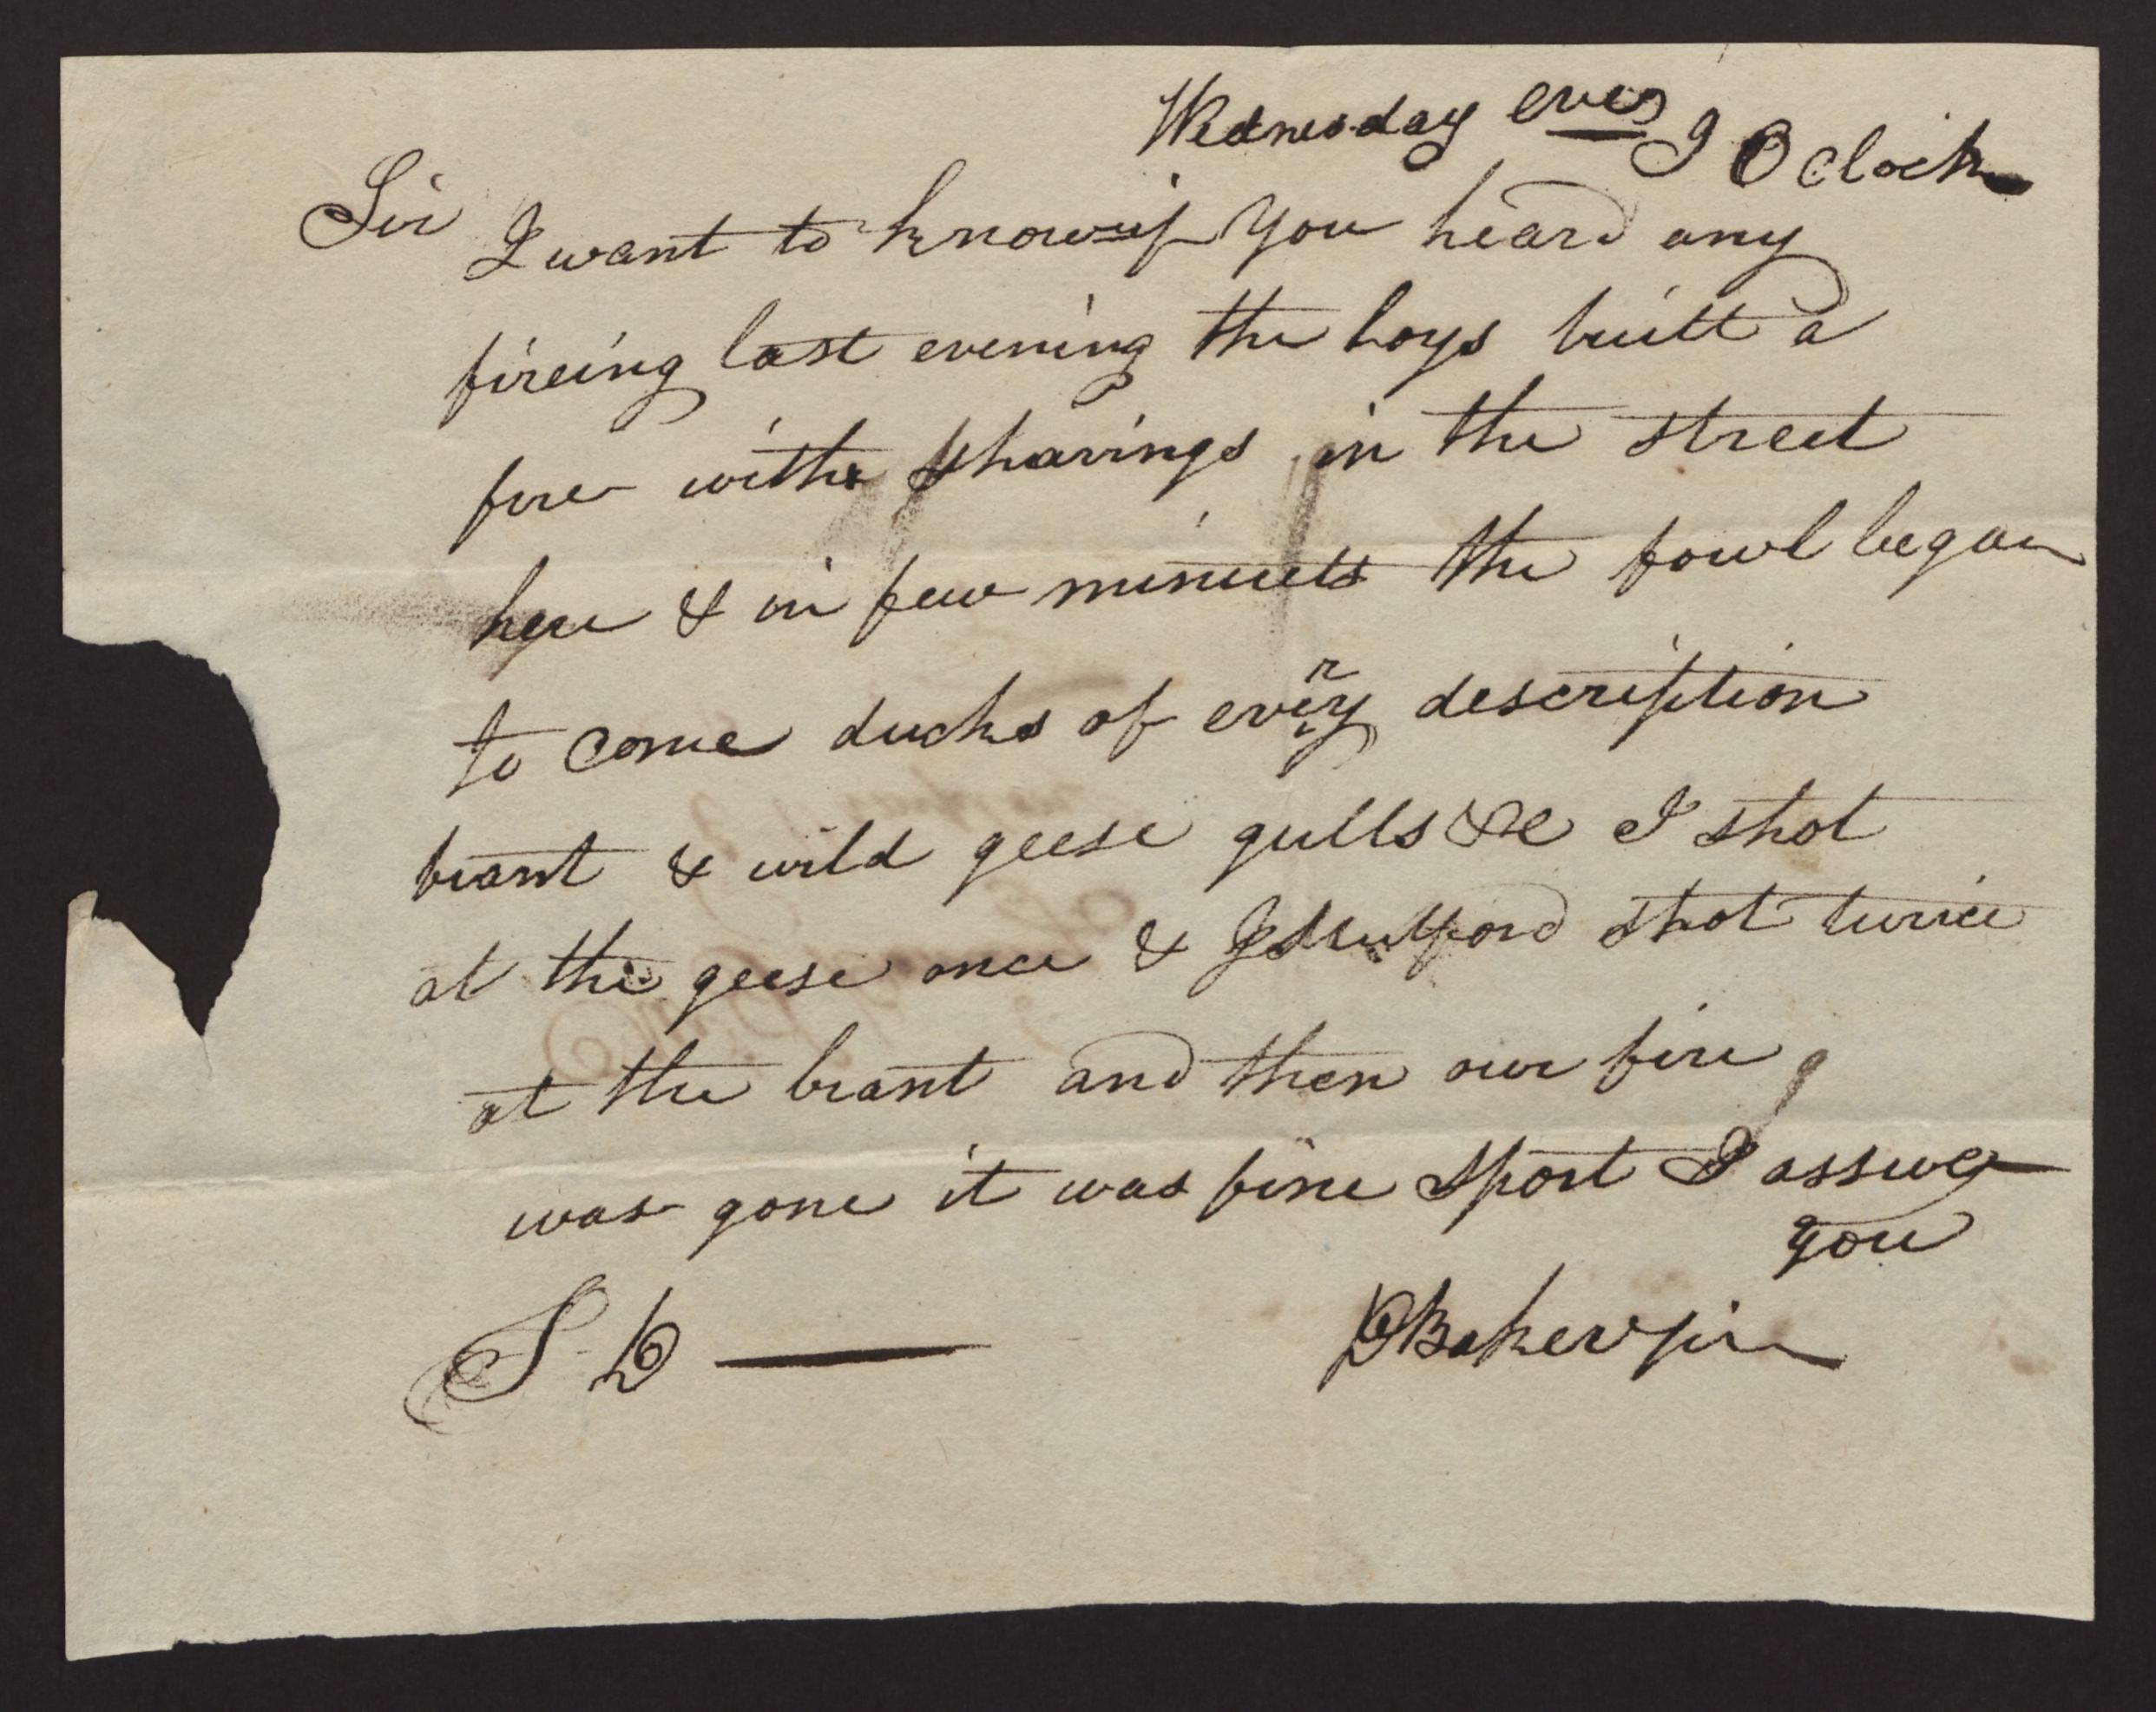 Wednesday eveg 9 O Clock
Sir
I want to know if you heard any
fireing last evening the boys built a
fire with shavings in the street
here & in few minuets the fowl began
to come ducks of every description
brant & wild geese gulls &c I shot
at the geese once & J Mulford shot twice
at the brant and then our fire
was gone it was fine sport I assure
you
S D
Baker jr